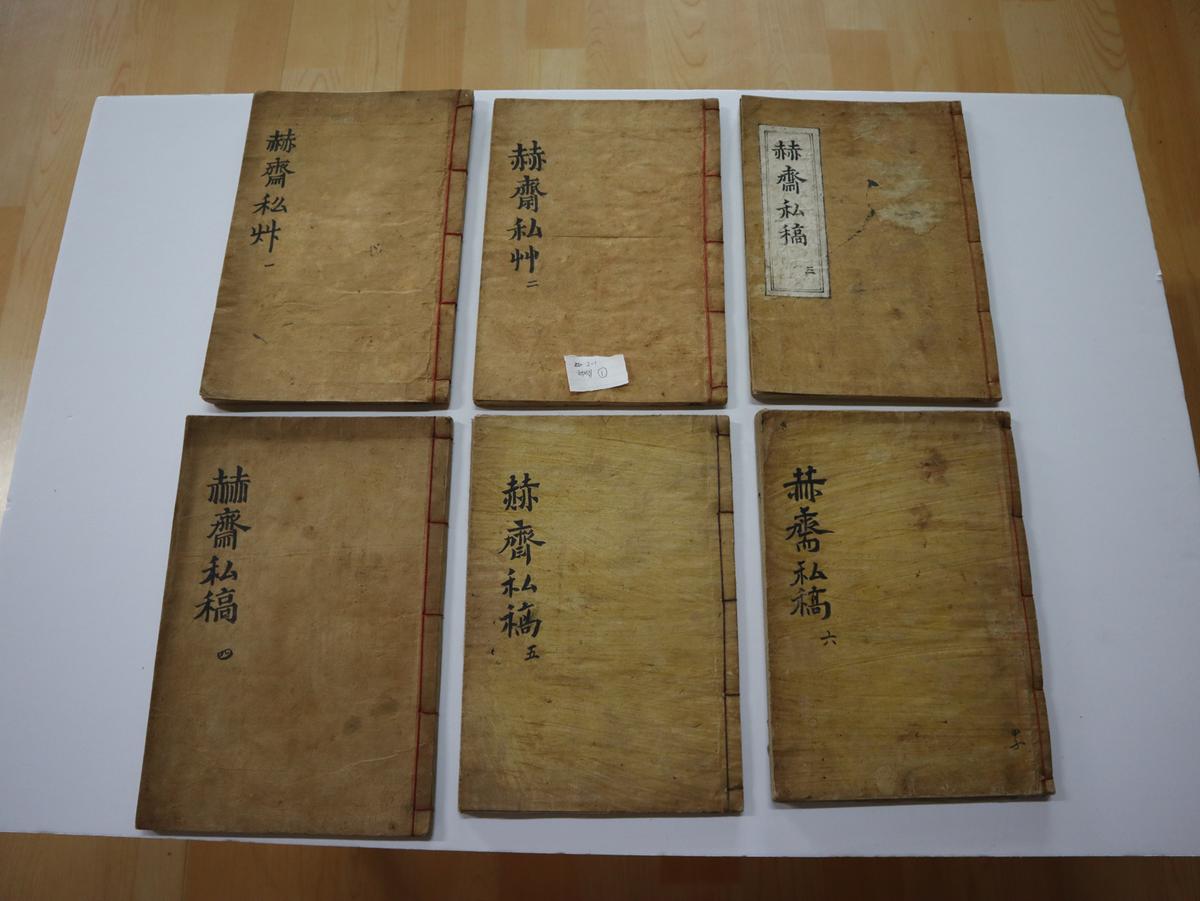 赫齋私艸
一
赫齋私艸
二
赫齋私稿
三
赫齋私稿
四
赫齊私稿
五
赫齋私稿
六
甲子
2-1
①